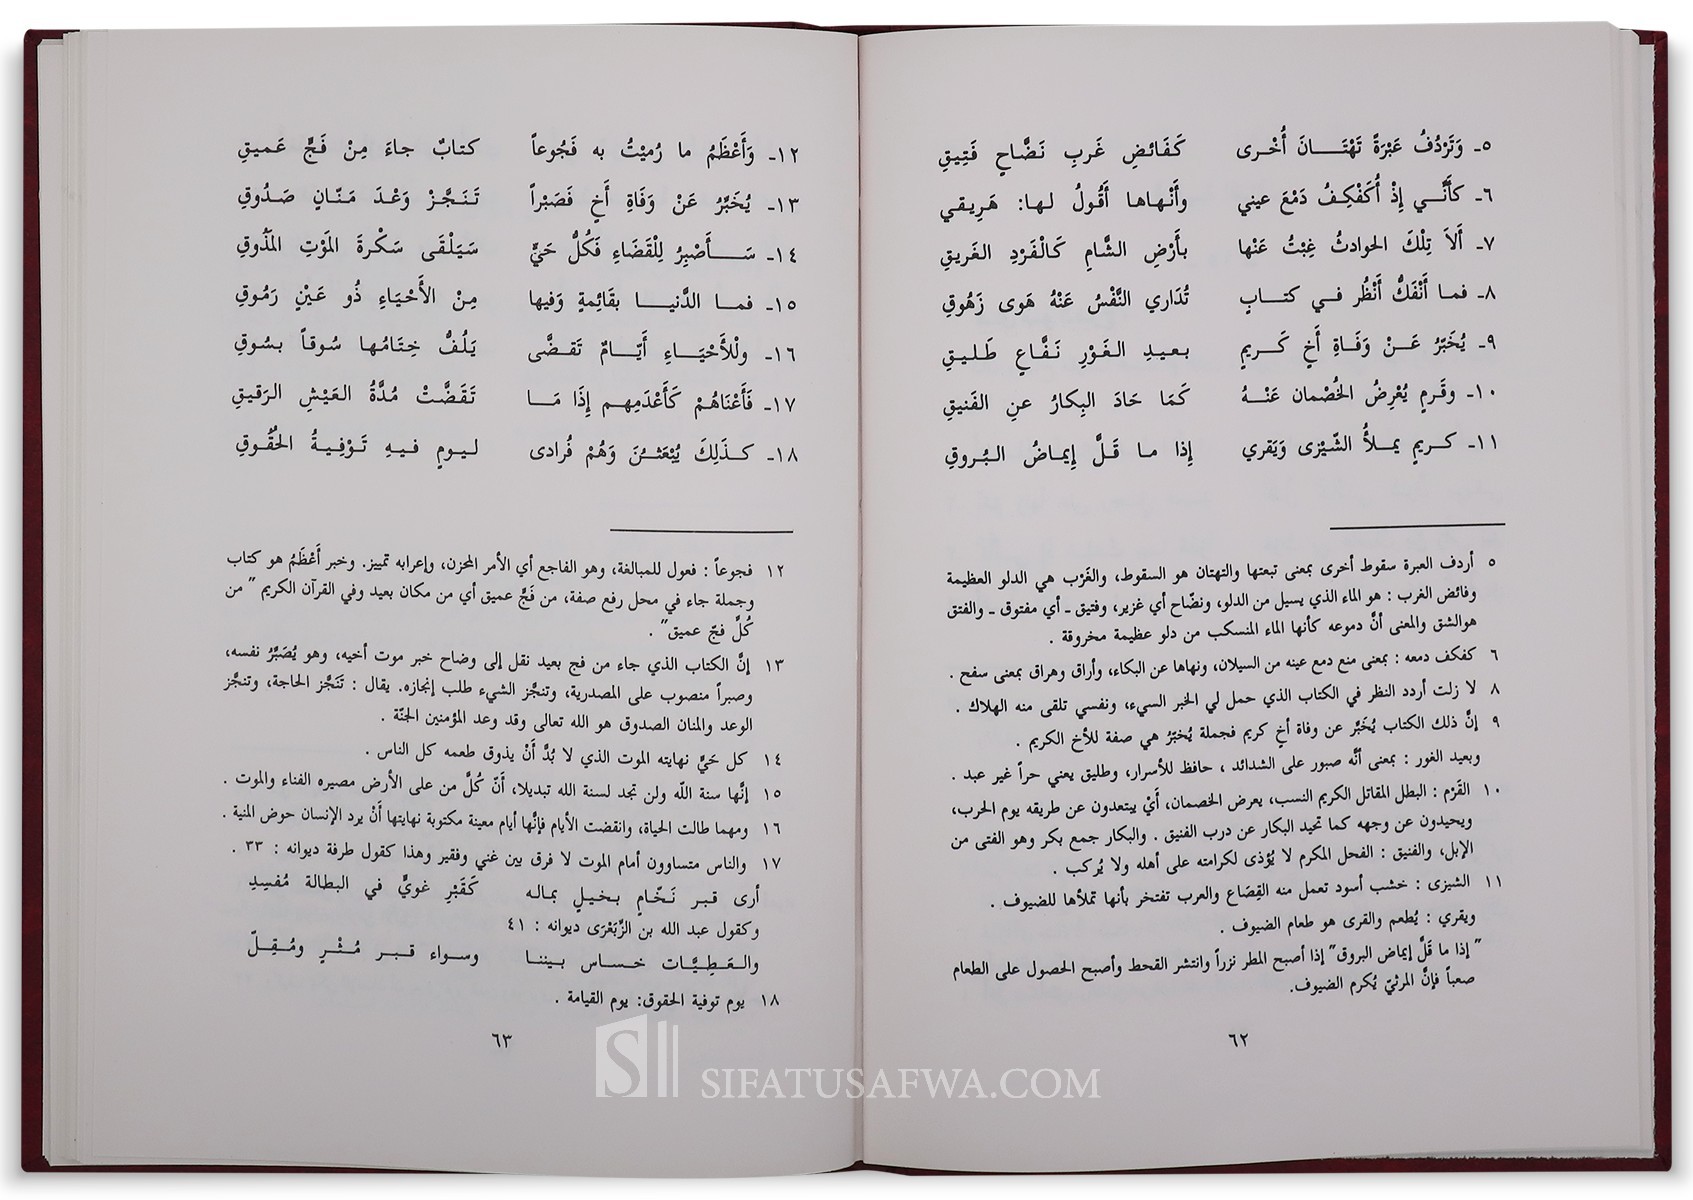 ٥ـ وَتَرْدُفُ عَبْرَةً تَهْتَـــانَ أُخْرى كَفَائضِ غَربِ نَضَّاحٍ فَتِيقِ
٦ـ كأَنَّــي إِذْ أُكَفْكِفُ دَمْعَ عيني وأَنْهاها أَقُولُ لـها: هَرِيقي
٧ـ أَلاَ تِلْكَ الحوادثُ غِبْتُ عَنْها بأَرْضِ الشَّامِ كَالْفَرْدِ الغَريقِ
٨ـ فما أَنْفَكُّ أَنْظُر فــي كتــابٍ تُدَاري النَّفْسُ عَنْهُ هَوى زَهُوقِ
٩ـ يُخَبِّرُ عَــنْ وَفَاةِ أَخٍ كَــريمٍ بـعيـدِ الـغَوْرِ نَفَّـاعٍ طَـليـقِ
١٠ـ وقَرمٍ يُعْرِضُ الخُصْمان عَنْــهُ كَمَا حَادَ البِكارُ عنِ الفَنيقِ
١١ـ كـريمٍ يمـلأُ الشّيْزى وَيَقري إِذا ما قَـلَّ إيماضُ البُروقِ
٥ أردف العبرة سقوط أخرى بمعنى تبعتها والتهتان هو السقوط، والغَرْب هي الدلو العظيمة
وفائض الغرب : هو الماء الذي يسيل من الدلو، ونضّاح أي غزير، وفتيق ـ أي مفتوق ـ والفتق
هوالشق والمعنى أنَّ دموعه كأنها الماء المنسكب من دلو عظيمة مخروقة .
٦ كفكف دمعه : بمعنى منع دمع عينه من السيلان، ونهاها عن البكاء، وأراق وهراق بمعنى سفح .
٨ لا زلت أردد النظر في الكتاب الذي حمل لي الخبر السيء، ونفسي تلقى منه الهلاك .
٩ إنَّ ذلك الكتاب يُخَبِّر عن وفاة أخٍ كريم فجملة يُخبّرُ هي صفة للأخ الكريم .
وبعيد الغور : بمعنى أنَّه صبور على الشدائد ، حافظ للأسرار، وطليق يعني حراً غير عبد .
١٠ القَرْم : البطل المقاتل الكريم النسب، يعرض الخصمان، أيْ يبتعدون عن طريقه يوم الحرب،
ويحيدون عن وجهه كما تحيد البكار عن درب الفنيق . والبكار جمع بكر وهو الفتى من
الإبل، والفنيق : الفحل المكرم لا يُؤذى لكرامته على أهله ولا يُركب .
١١ الشيزى : خشب أسود تعمل منه القِصَاع والعرب تفتخر بأنها تملأها للضيوف .
ويقري : يُطعم والقرى هو طعام الضيوف .
"إذا ما قَلَّ إيماض البروق" إذا أصبح المطر نزراً وانتشر القحط وأصبح الحصول على الطعام
صعباً فإنَّ المرثيّ يُكرم الضيوف.
٦٢
١٢ـ وَأَعْظَمُ ما رُميْتُ به فَجُوعاً كتابٌ جاءَ مِنْ فَجٍّ عَـميقِ
١٣ـ يُخَبِّرُ عَنْ وَفَاةِ أَخٍ فَصَبْراً تَنَجَّزْ وَعْدَ مَنّانٍ صَدُوقِ
١٤ـ سَـــأَصْبِرُ لِلْقَضَاءِ فَكُلُّ حَيٍّ سَيَلْقَى سَكْرةَ المَوْتِ المَذُوقِ
١٥ـ فمـا الدَّنيـــا بقَائِمةٍ وَفيها مِنْ الأَحْيَاءِ ذُو عَيْنٍ رَمُوقِ
١٦ـ ولْلأَحْيَـــاءِ أَيّــامٌ تَقضَّى يَلُفُّ خِتَامُها سُوقاً بسُوقِ
١٧ـ فَأَغْنَاهُمْ كَأَعْدَمِهـم إِذَا مَـــا تَقَضَّتْ مُدَّةُ العَيْشِ الرَقيقِ
١٨ـ كـذَلِكَ يُبْعَثُــنَ وَهُمْ فُرادى ليـومٍ فيـهِ تَوْفِيةُ الحُقُوقِ
١٢ فجوعاً : فعول للمبالغة، وهو الفاجع أي الأمر المحزن، وإعرابه تمييز. وخبر أَعْظَمُ هو كتاب
وجملة جاء في محل رفع صفة، من فَجٍّ عميق أي من مكان بعيد وفي القرآن الكريم "من
كُلِّ فجّ عميق" .
١٣ إنَّ الكتاب الذي جاء من فج بعيد نقل إلى وضاح خبر موت أخيه، وهو يُصَبِّرُ نفسه،
وصبراً منصوب على المصدرية، وتنجّز الشيء طلب إنجازه. يقال : تَنَجَّز الحاجة، وتنجَّز
الوعد والمنان الصدوق هو الله تعالى وقد وعد المؤمنين الجنّة .
١٤ كل حَيٍّ نهايته الموت الذي لا بُدَّ أَنْ يذوق طعمه كل الناس .
١٥ إنَّها سنة اللّه ولن تجد لسنة الله تبديلا، أَنّ كُلَّ من على الأرض مصيره الفناء والموت .
١٦ ومهما طالت الحياة، وانقضت الأيام فإنَّها أيام معينة مكتوبة نهايتها أَنْ يرد الإنسان حوض المنية .
١٧ والناس متساوون أمام الموت لا فرق بين غني وفقير وهذا كقول طرفة ديوانه : ٣٣ .
أرى قبر نَحّامٍ بخيلٍ بماله كَقَبْرِ غويٍّ في البطالة مُفسِدِ
وكقول عبد الله بن الزِّبَعْرَى ديوانه : ٤١
والـعَطِيَّـات خسـاس بيننـا وسـواء قبـر مُـثْـرٍ ومُـقِـلّ
١٨ يوم توفية الحقوق: يوم القيامة .
٦٣
SIFATUSAFWA.COM